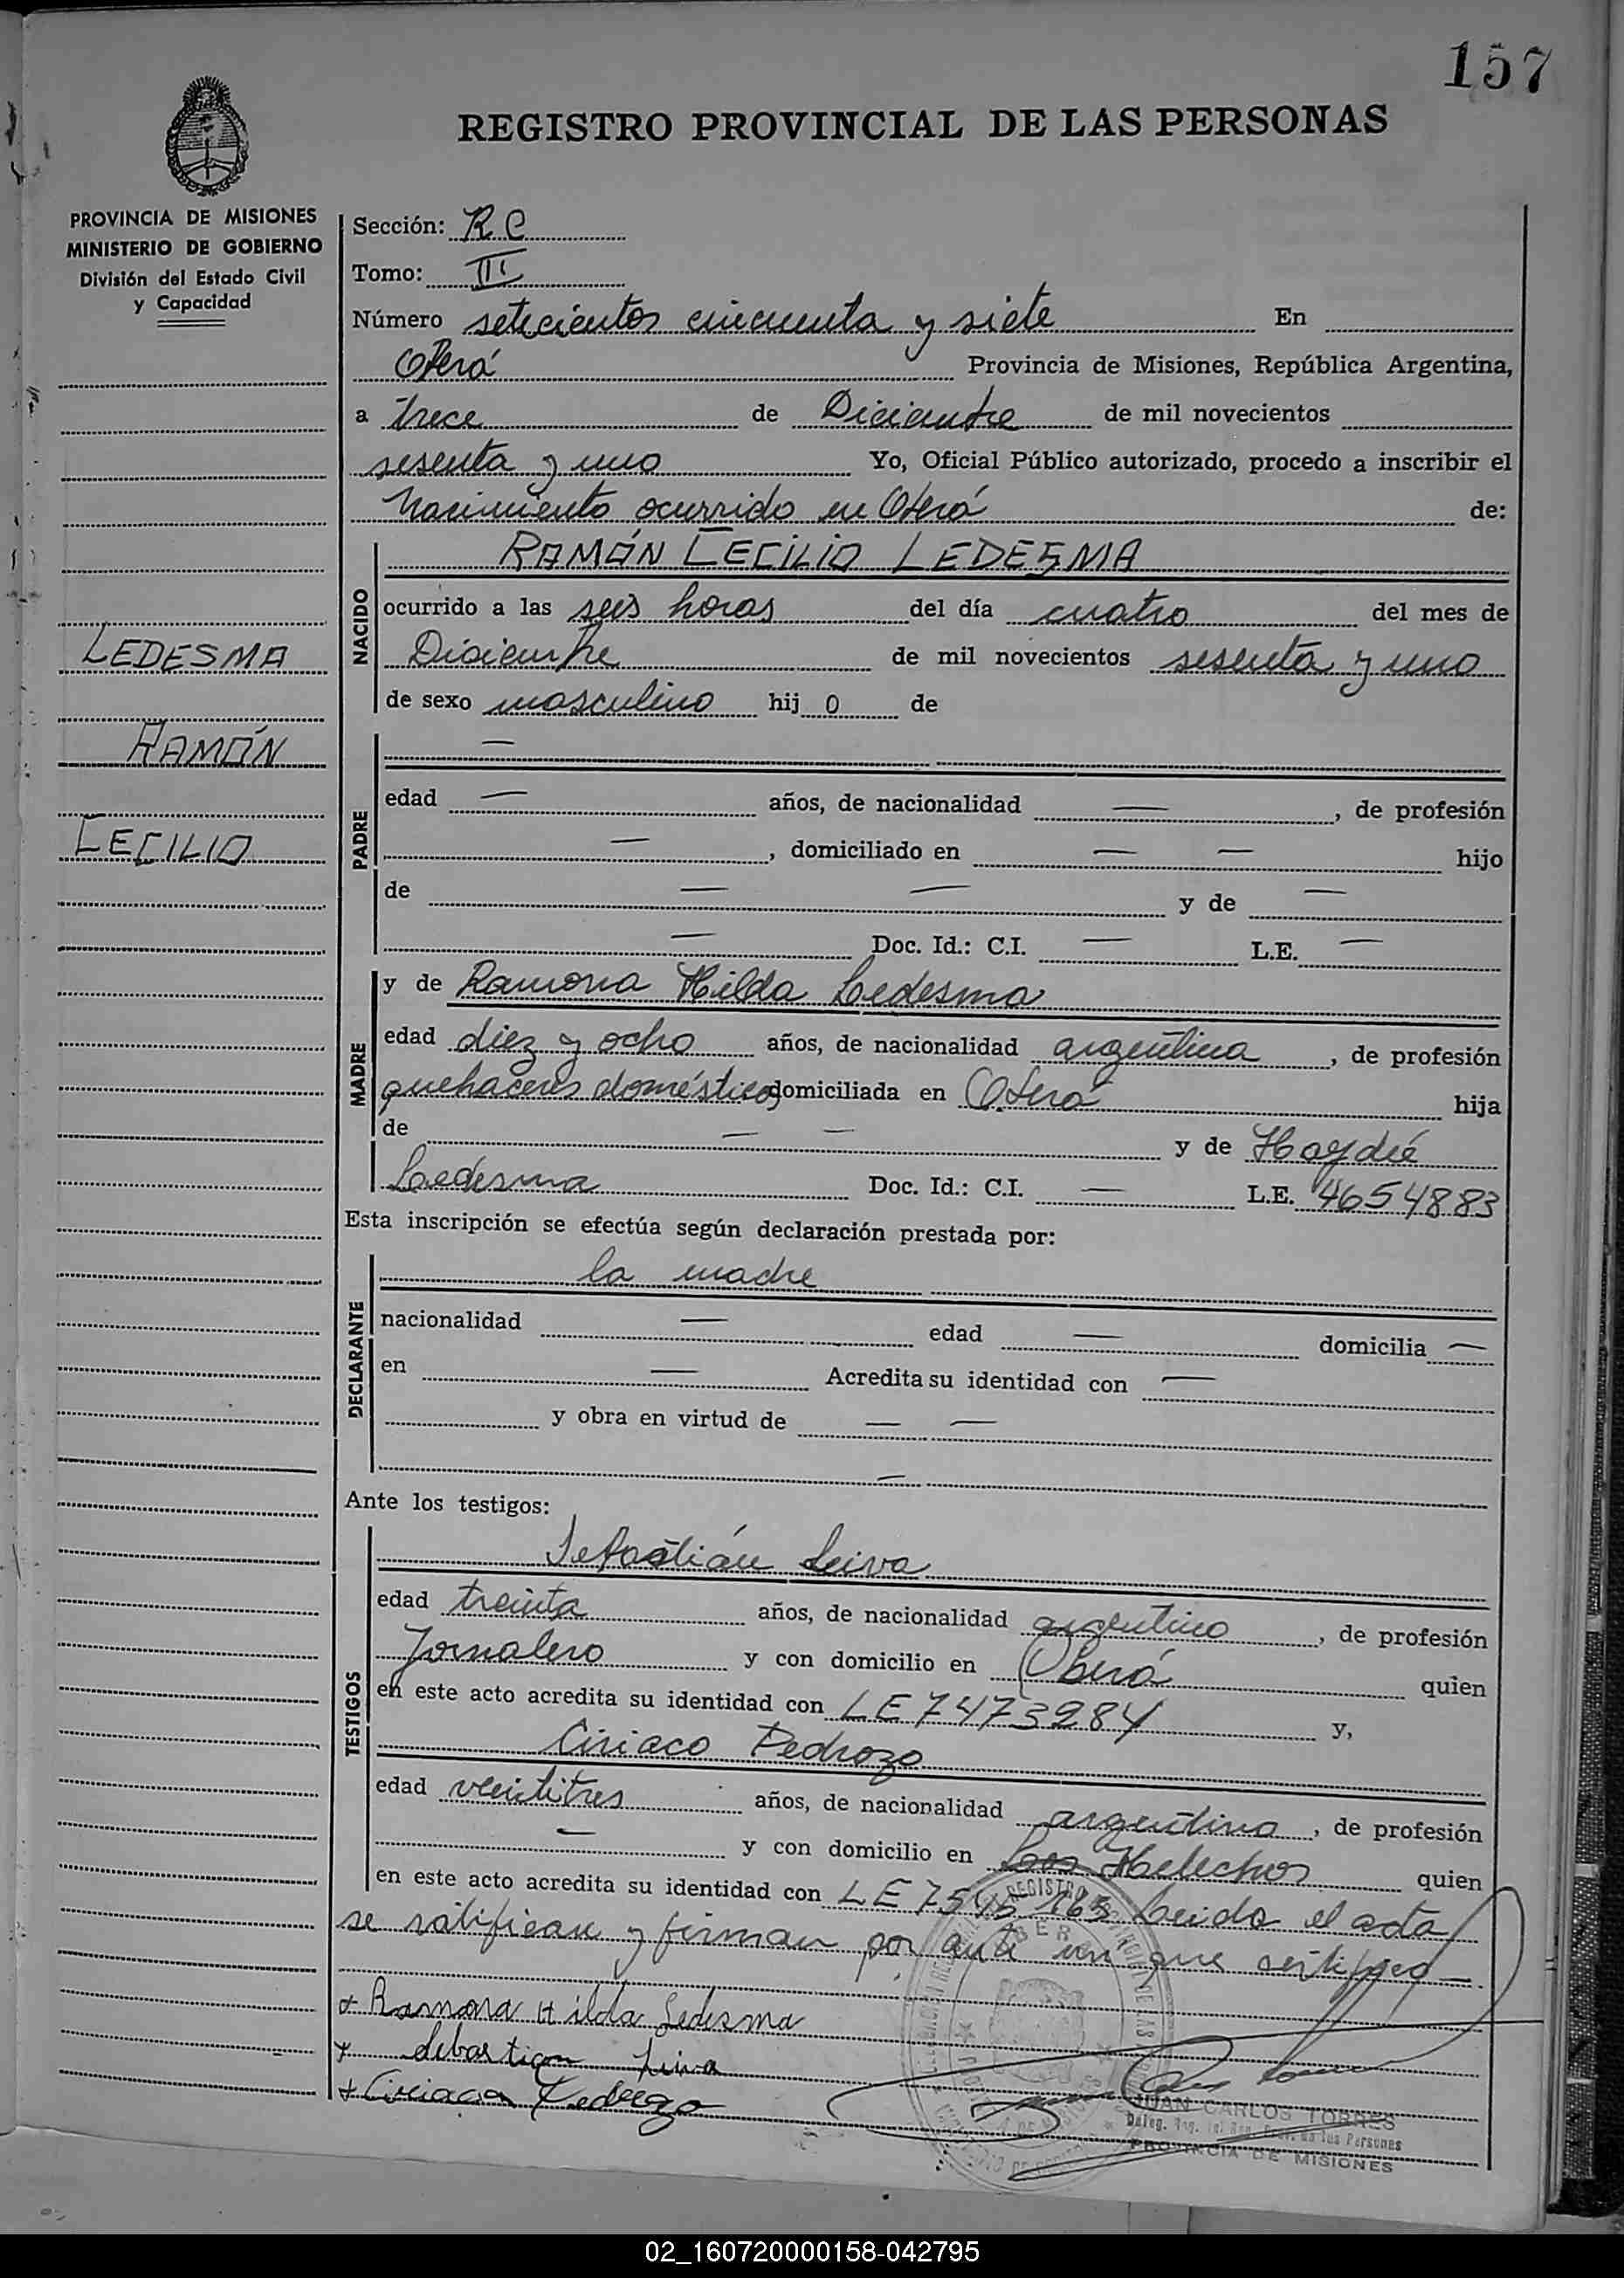 157
REGISTRO PROVINCIAL DE LAS PERSONAS
PROVINCIA DE MISIONES
MINISTERIO DE GOBIERNO
División del Estado Civil
y Capacidad
LEDESMA
RAMÓN
CECILIO
Sección: R C
Tomo: III
Número setecientos cincuenta y siete En
Oberá Provincia de Misiones, República Argentina,
a trece de Diciembre de mil novecientos
sesenta y uno Yo, Oficial Público autorizado, procedo a inscribir el
Nacimiento ocurrido en Oberá de:
NACIDO
RAMÓN CECILIO LEDESMA
ocurrido a las seis horas del día cuatro del mes de
Diciembre de mil novecientos sesenta y uno
de sexo masculino hij o de
PADRE
—
edad — años, de nacionalidad —, de profesión
—, domiciliado en — — hijo
de — — y de —
— Doc. Id.: C.I. — L.E. —
MADRE
y de Ramona Hilda Ledesma
edad diez y ocho años, de nacionalidad argentina, de profesión
quehaceres domésticos domiciliada en Oberá hija
de — — y de Haydée
Ledesma Doc. Id.: C.I. — L.E. 4654883
Esta inscripción se efectúa según declaración prestada por:
DECLARANTE
la madre
nacionalidad — edad — domicilia —
en — Acredita su identidad con —
y obra en virtud de — —
—
Ante los testigos:
TESTIGOS
Sebastián Leiva
edad treinta años, de nacionalidad argentino, de profesión
Jornalero y con domicilio en Oberá quien
en este acto acredita su identidad con LE 7473284 y,
Ciriaco Pedrozo
edad veintitres años, de nacionalidad argentino, de profesión
— y con domicilio en Los Helechos quien
en este acto acredita su identidad con LE 7545163 Leida el acta
se ratifican y firman por ante mi que certifico —
+ Ramona Hilda Ledesma
+ Sebastian Leiva
+ Ciriaco Pedrozo
JUAN CARLOS TORRES
PROVINCIA DE MISIONES
02_160720000158-042795